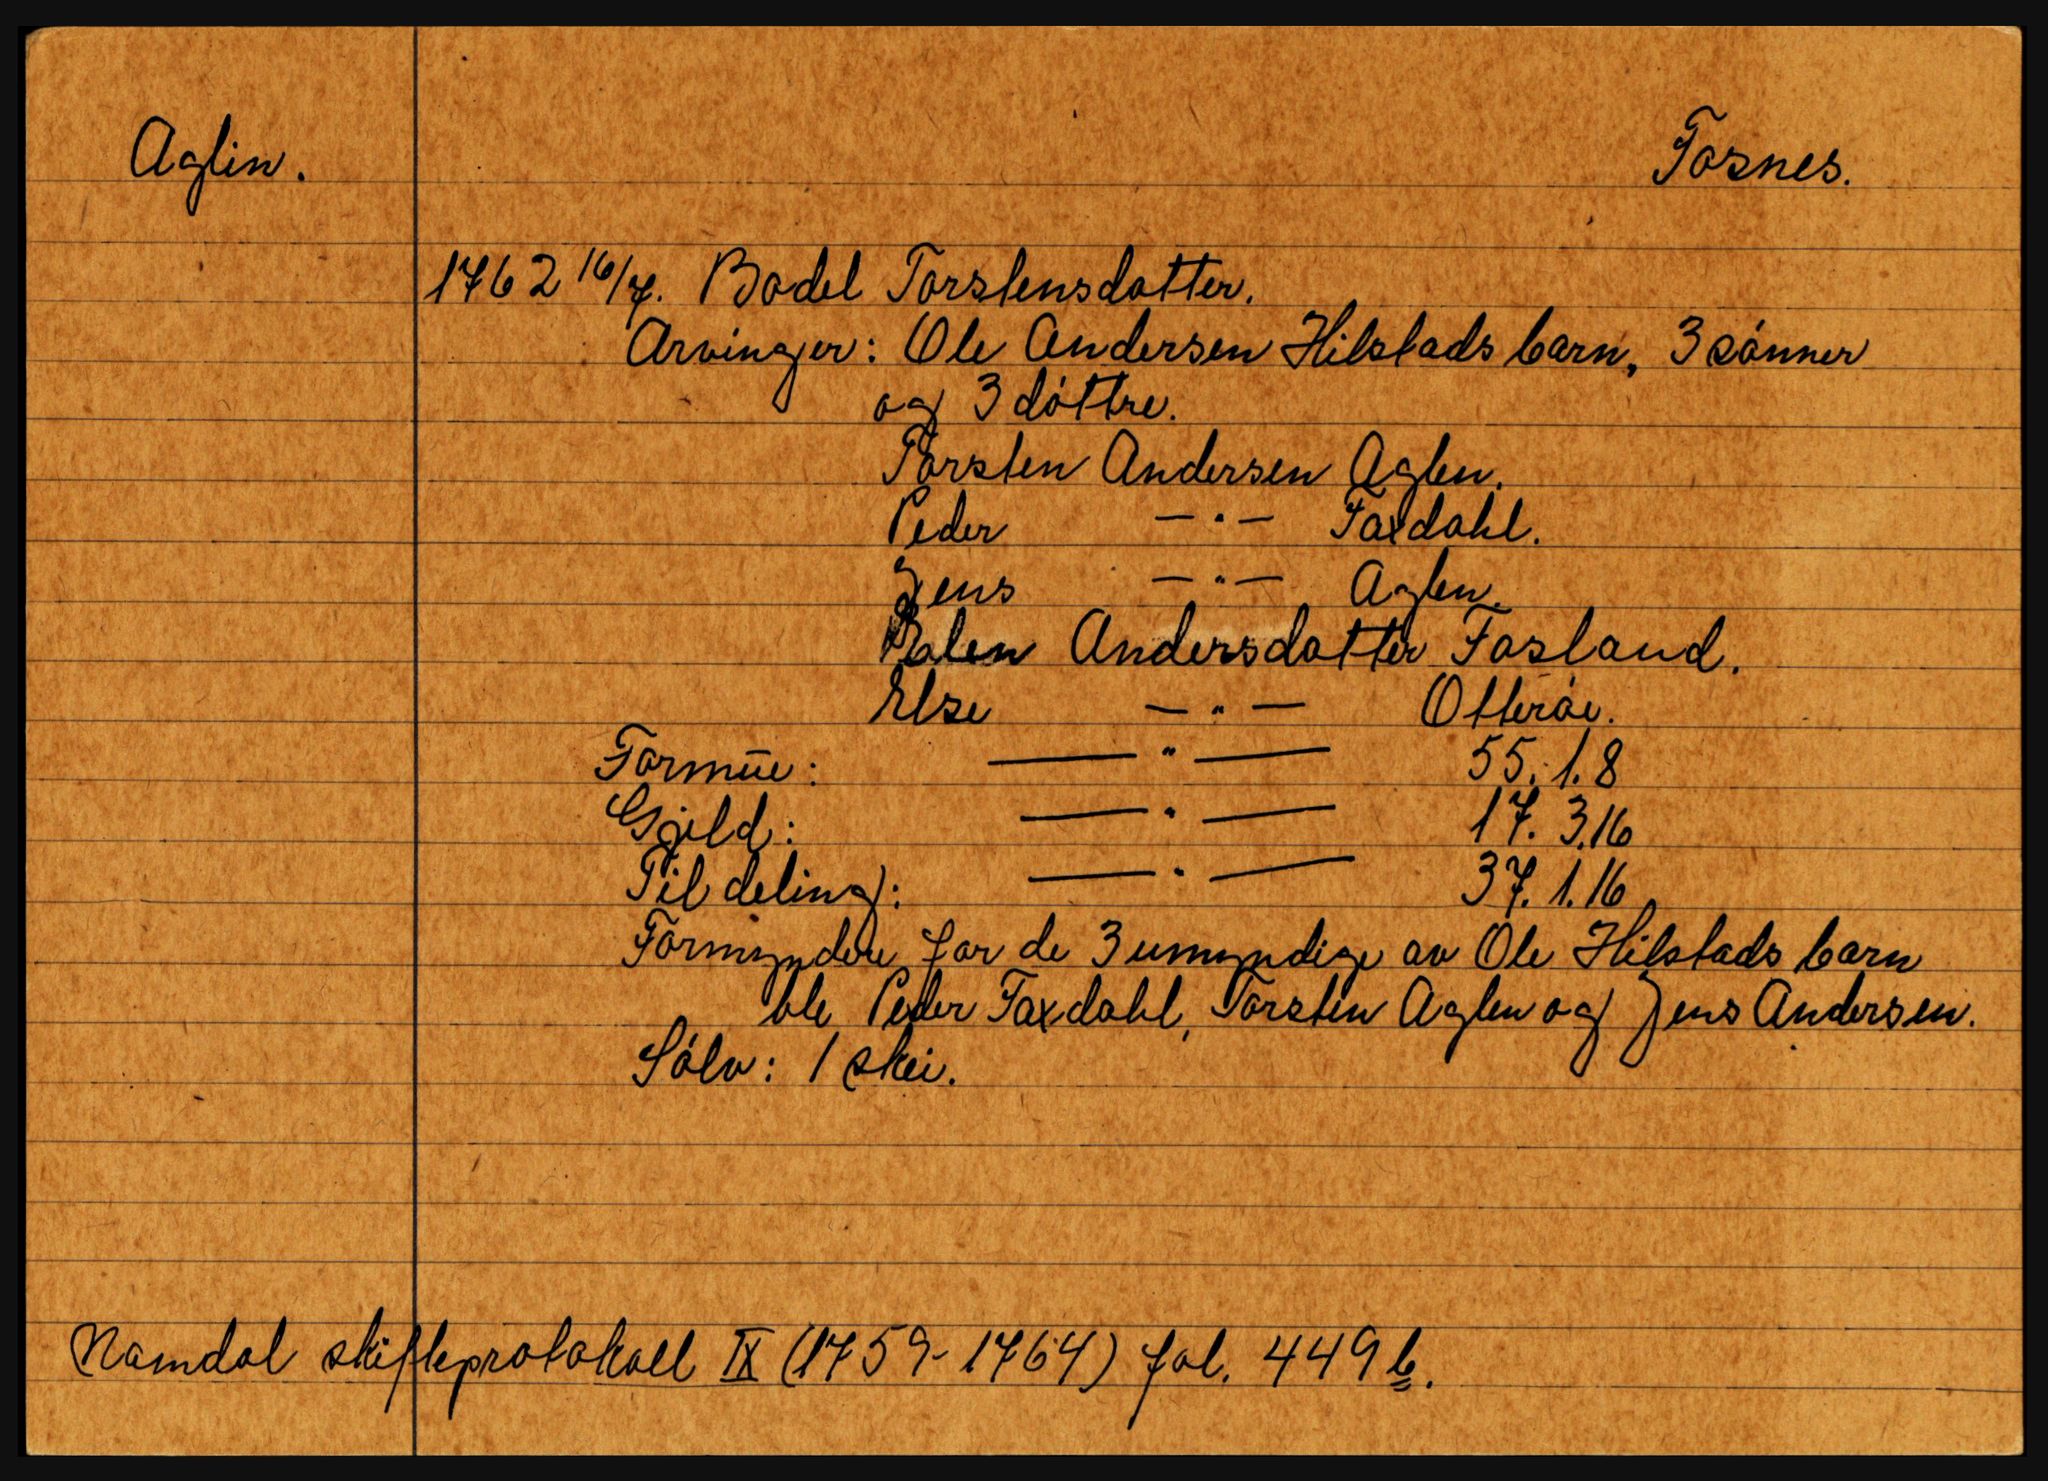 Aglin.
Fosnes.
1762 16/7. Bodel Torstensdatter.
Arvinger: Ole Andersen Hilstads barn, 3 sónner
og 3 dóttre.
Torsten Andersen Aglen.
Peder — " — Faxdahl.
Jens — " — Aglen.
Andersdatter Fosland.
Else — " — Otteróe.
Formüe: — " — 55. 1. 8
Gjeld: — " — 17. 3. 16
Til deling: — " — 37. 1. 16
Formyndere for de 3 umyndige av Ole Hilstads barn
ble Peder Faxdahl, Torsten Aglen og Jens Andersen.
Sólv: 1 skei.
Namdal skifteprotokoll IX (1759-1764) fol. 449 b.